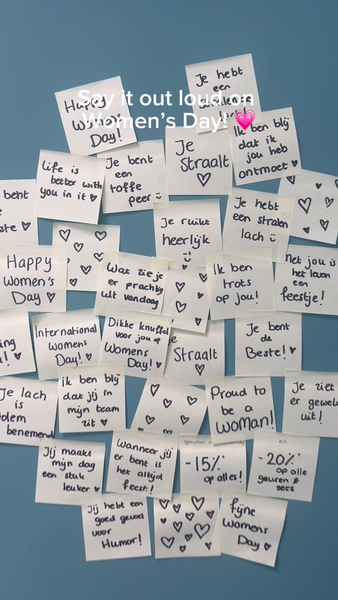 Say it out loud on
Women's Day! 💗
Happy
Women's
Day!
Je hebt
een
Ik ben blij
dat ik
jou heb
ontmoet ♡
Je
Straalt
♡
Je bent
een
toffe
peer
Life is
better with
you in it ♡
bent
Je ruikt
heerlijk
Je hebt
een stralende
lach
Happy
Women's
Day ♡
Wat zie je
er prachtig
uit vandaag
Ik ben
trots
op jou!
Met jou is
het leven
een
feestje!
International
Womens
Day! ♡
Dikke knuffel
voor jou
Womens
Day!
Straalt
♡
Je bent
de
Beste! ♡
Je lach
is
benemend
Ik ben blij
dat jij in
mijn team
zit ♡
Proud to
be a
woman!
Je ziet
er
uit!
Jij maakt
mijn dag
een stuk
leuker ♡
Wanneer jij
er bent is
het altijd
feest!
-15%
op alles!
en
-20%
op alle
geuren &
sets
Jij hebt een
goed gevoel
voor
Humor!
fijne
Womens
Day ♡